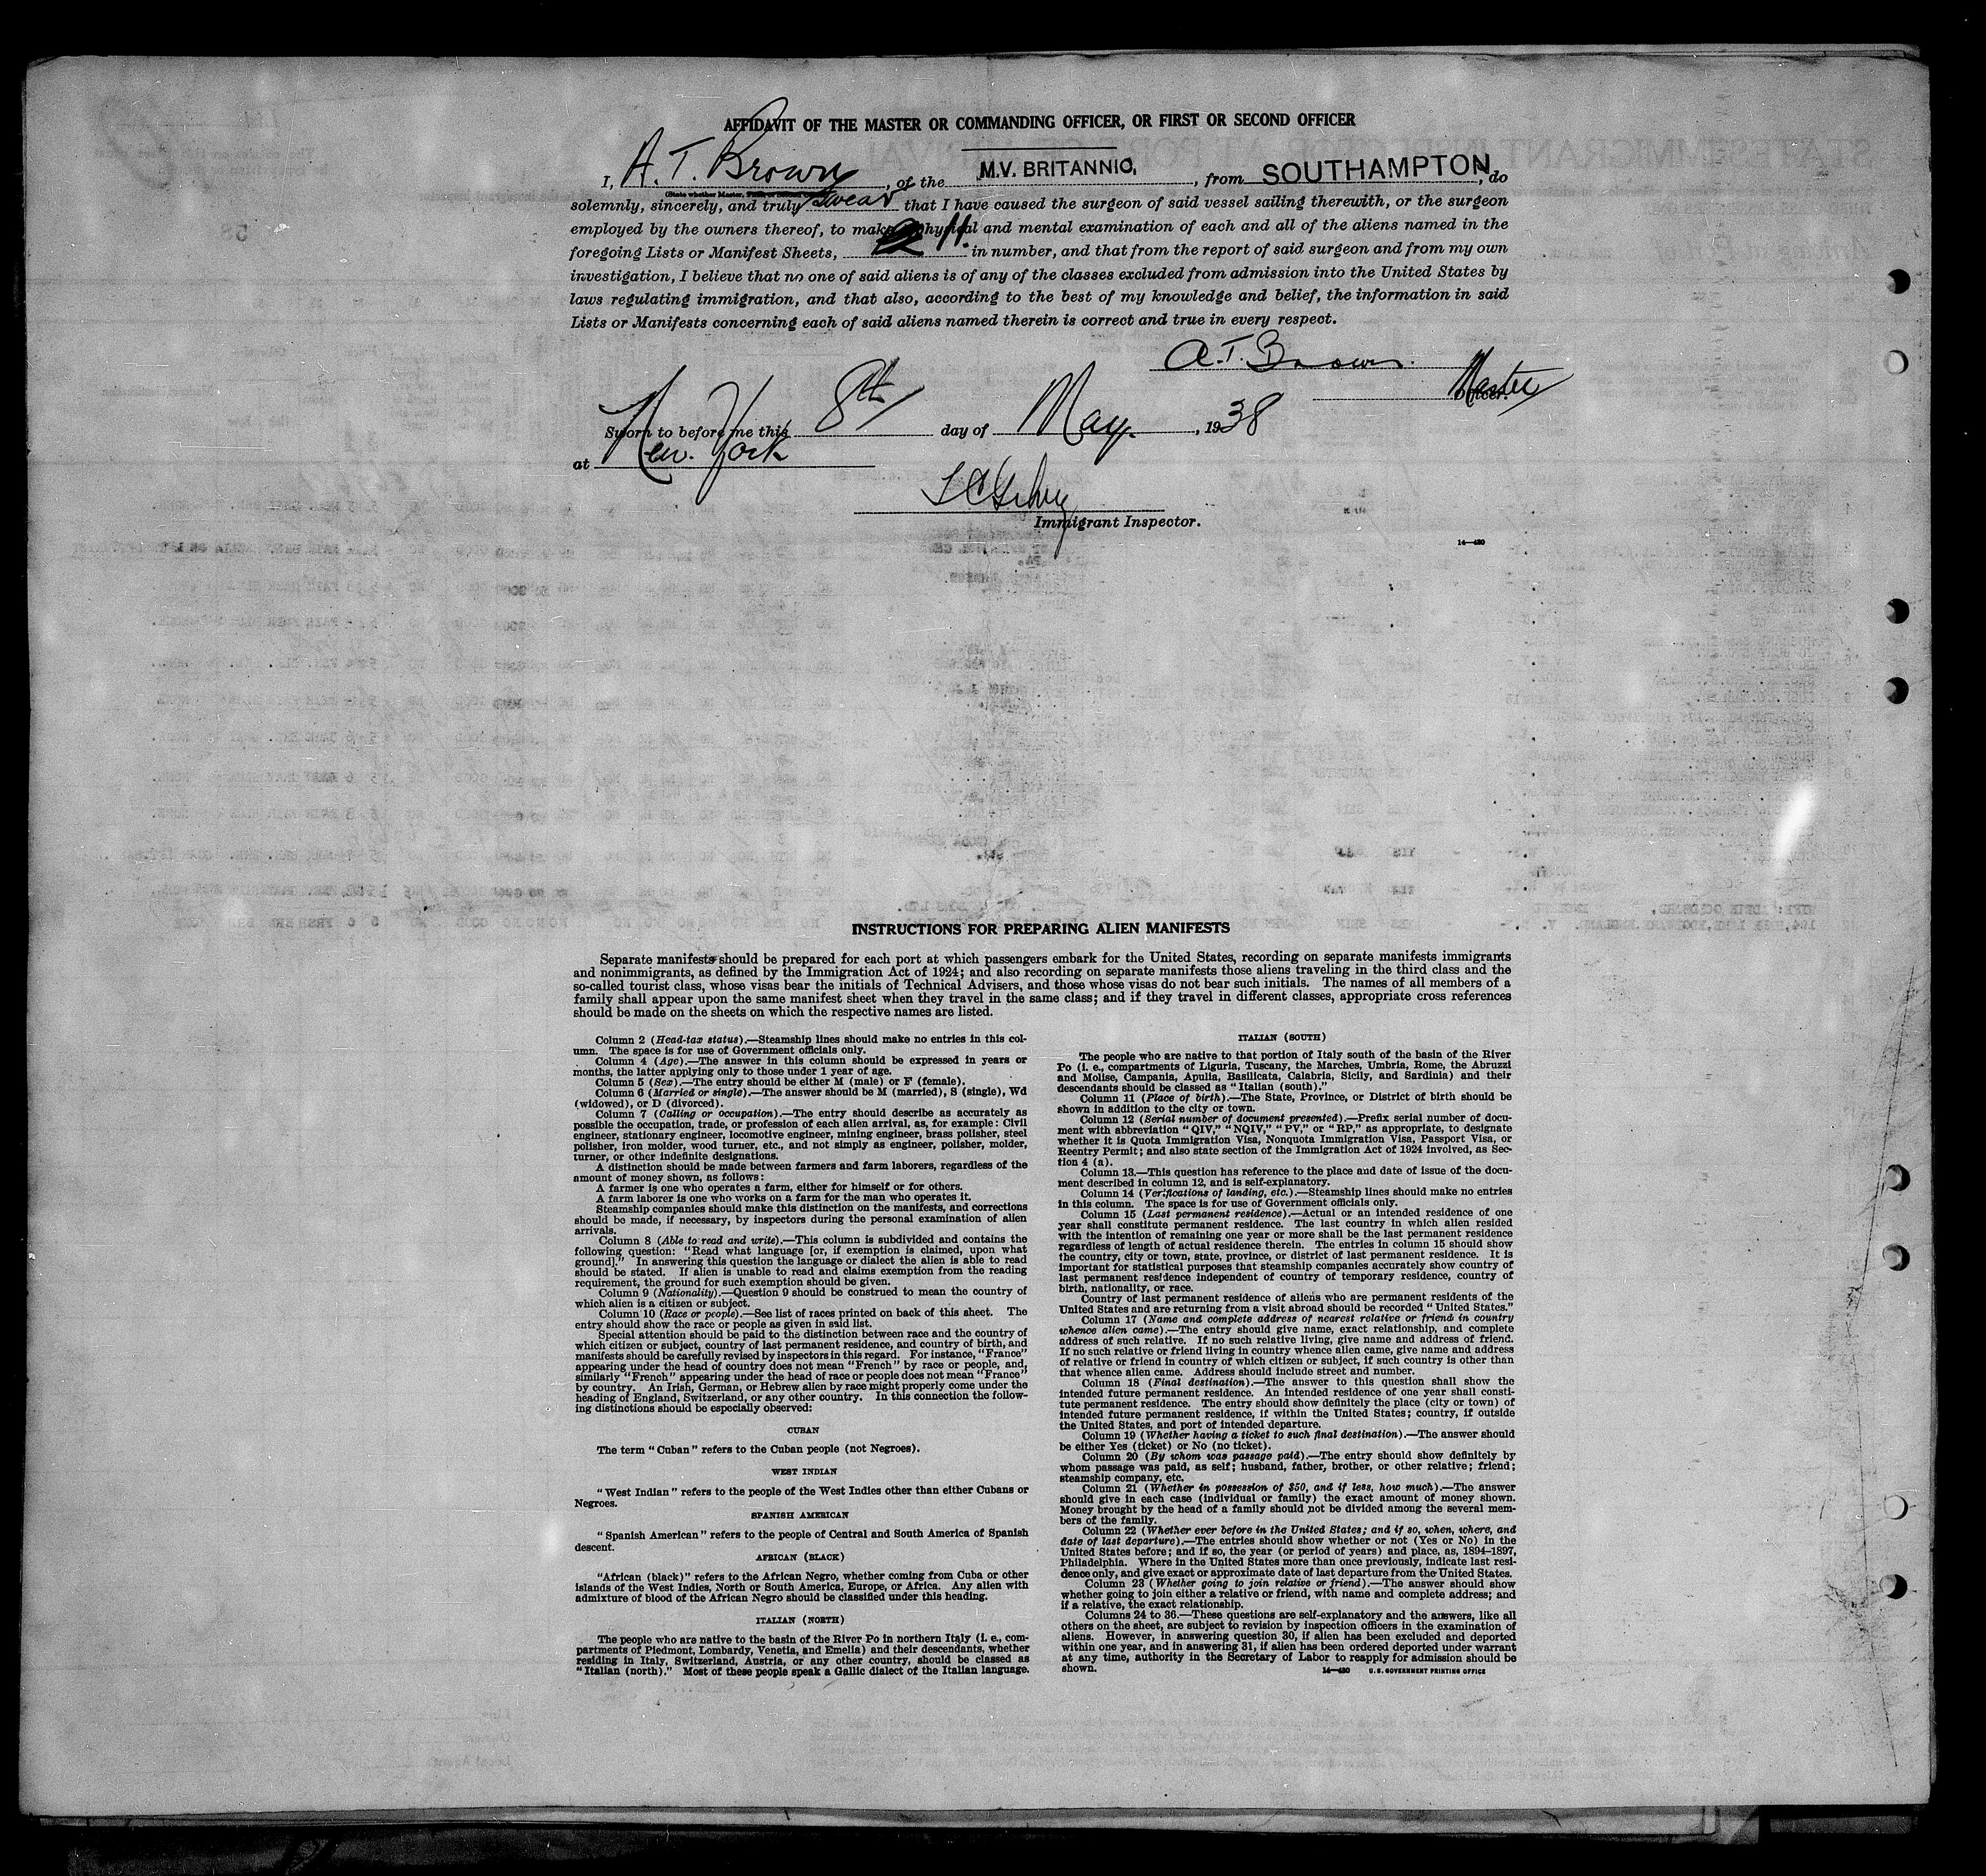 AFFIDAVIT OF THE MASTER OR COMMANDING OFFICER, OR FIRST OR SECOND OFFICER
I, A. T. Brown, of the M.V. BRITANNIC, from SOUTHAMPTON, do
(State whether Master,
solemnly, sincerely, and truly swear that I have caused the surgeon of said vessel sailing therewith, or the surgeon
employed by the owners thereof, to make a physical and mental examination of each and all of the aliens named in the
foregoing Lists or Manifest Sheets, 11. in number, and that from the report of said surgeon and from my own
investigation, I believe that no one of said aliens is of any of the classes excluded from admission into the United States by
laws regulating immigration, and that also, according to the best of my knowledge and belief, the information in said
Lists or Manifests concerning each of said aliens named therein is correct and true in every respect.
A. T. Brown.
Master
Officer.
Sworn to before me this 8th day of May., 1938
at New York
Immigrant Inspector.
14—420
INSTRUCTIONS FOR PREPARING ALIEN MANIFESTS
Separate manifests should be prepared for each port at which passengers embark for the United States, recording on separate manifests immigrants
and nonimmigrants, as defined by the Immigration Act of 1924; and also recording on separate manifests those aliens traveling in the third class and the
so-called tourist class, whose visas bear the initials of Technical Advisers, and those whose visas do not bear such initials. The names of all members of a
family shall appear upon the same manifest sheet when they travel in the same class; and if they travel in different classes, appropriate cross references
should be made on the sheets on which the respective names are listed.
Column 2 (Head-tax status).—Steamship lines should make no entries in this col-
umn. The space is for use of Government officials only.
Column 4 (Age).—The answer in this column should be expressed in years or
months, the latter applying only to those under 1 year of age.
Column 5 (Sex).—The entry should be either M (male) or F (female).
Column 6 (Married or single).—The answer should be M (married), S (single), Wd
(widowed), or D (divorced).
Column 7 (Calling or occupation).—The entry should describe as accurately as
possible the occupation, trade, or profession of each alien arrival, as, for example: Civil
engineer, stationary engineer, locomotive engineer, mining engineer, brass polisher, steel
polisher, iron molder, wood turner, etc., and not simply as engineer, polisher, molder,
turner, or other indefinite designations.
A distinction should be made between farmers and farm laborers, regardless of the
amount of money shown, as follows:
A farmer is one who operates a farm, either for himself or for others.
A farm laborer is one who works on a farm for the man who operates it.
Steamship companies should make this distinction on the manifests, and corrections
should be made, if necessary, by inspectors during the personal examination of alien
arrivals.
Column 8 (Able to read and write).—This column is subdivided and contains the
following question: "Read what language [or, if exemption is claimed, upon what
ground]." In answering this question the language or dialect the alien is able to read
should be stated. If alien is unable to read and claims exemption from the reading
requirement, the ground for such exemption should be given.
Column 9 (Nationality).—Question 9 should be construed to mean the country of
which alien is a citizen or subject.
Column 10 (Race or people).—See list of races printed on back of this sheet. The
entry should show the race or people as given in said list.
Special attention should be paid to the distinction between race and the country of
which citizen or subject, country of last permanent residence, and country of birth, and
manifests should be carefully revised by inspectors in this regard. For instance, "France"
appearing under the head of country does not mean "French" by race or people, and,
similarly "French" appearing under the head of race or people does not mean "France"
by country. An Irish, German, or Hebrew alien by race might properly come under the
heading of England, Switzerland, or any other country. In this connection the follow-
ing distinctions should be especially observed:
CUBAN
The term "Cuban" refers to the Cuban people (not Negroes).
WEST INDIAN
"West Indian" refers to the people of the West Indies other than either Cubans or
Negroes.
SPANISH AMERICAN
"Spanish American" refers to the people of Central and South America of Spanish
descent.
AFRICAN (BLACK)
"African (black)" refers to the African Negro, whether coming from Cuba or other
islands of the West Indies, North or South America, Europe, or Africa. Any alien with
admixture of blood of the African Negro should be classified under this heading.
ITALIAN (NORTH)
The people who are native to the basin of the River Po in northern Italy (i. e., com-
partments of Piedmont, Lombardy, Venetia, and Emelia) and their descendants, whether
residing in Italy, Switzerland, Austria, or any other country, should be classed as
"Italian (north)." Most of these people speak a Gallic dialect of the Italian language.
ITALIAN (SOUTH)
The people who are native to that portion of Italy south of the basin of the River
Po (i. e., compartments of Liguria, Tuscany, the Marches, Umbria, Rome, the Abruzzi
and Molise, Campania, Apulia, Basilicata, Calabria, Sicily, and Sardinia) and their
descendants should be classed as "Italian (south)."
Column 11 (Place of birth).—The State, Province, or District of birth should be
shown in addition to the city or town.
Column 12 (Serial number of document presented).—Prefix serial number of docu-
ment with abbreviation "QIV," "NQIV," "PV," or "RP," as appropriate, to designate
whether it is Quota Immigration Visa, Nonquota Immigration Visa, Passport Visa, or
Reentry Permit; and also state section of the Immigration Act of 1924 involved, as Sec-
tion 4 (a).
Column 13.—This question has reference to the place and date of issue of the docu-
ment described in column 12, and is self-explanatory.
Column 14 (Verifications of landing, etc.).—Steamship lines should make no entries
in this column. The space is for use of Government officials only.
Column 15 (Last permanent residence).—Actual or an intended residence of one
year shall constitute permanent residence. The last country in which alien resided
with the intention of remaining one year or more shall be the last permanent residence
regardless of length of actual residence therein. The entries in column 15 should show
the country, city or town, state, province, or district of last permanent residence. It is
important for statistical purposes that steamship companies accurately show country of
last permanent residence independent of country of temporary residence, country of
birth, nationality, or race.
Country of last permanent residence of aliens who are permanent residents of the
United States and are returning from a visit abroad should be recorded "United States."
Column 17 (Name and complete address of nearest relative or friend in country
whence alien came).—The entry should give name, exact relationship, and complete
address of such relative. If no such relative living, give name and address of friend.
If no such relative or friend living in country whence alien came, give name and address
of relative or friend in country of which citizen or subject, if such country is other than
that whence alien came. Address should include street and number.
Column 18 (Final destination).—The answer to this question shall show the
intended future permanent residence. An intended residence of one year shall consti-
tute permanent residence. The entry should show definitely the place (city or town) of
intended future permanent residence, if within the United States; country, if outside
the United States, and port of intended departure.
Column 19 (Whether having a ticket to such final destination).—The answer should
be either Yes (ticket) or No (no ticket).
Column 20 (By whom was passage paid).—The entry should show definitely by
whom passage was paid, as self; husband, father, brother, or other relative; friend;
steamship company, etc.
Column 21 (Whether in possession of $50, and if less, how much).—The answer
should give in each case (individual or family) the exact amount of money shown.
Money brought by the head of a family should not be divided among the several mem-
bers of the family.
Column 22 (Whether ever before in the United States; and if so, when, where, and
date of last departure).—The entries should show whether or not (Yes or No) in the
United States before; and if so, the year (or period of years) and place, as, 1894–1897,
Philadelphia. Where in the United States more than once previously, indicate last resi-
dence only, and give exact or approximate date of last departure from the United States.
Column 23 (Whether going to join relative or friend).—The answer should show
whether going to join either a relative or friend, with name and complete address; and
if a relative, the exact relationship.
Columns 24 to 36.—These questions are self-explanatory and the answers, like all
others on the sheet, are subject to revision by inspection officers in the examination of
aliens. However, in answering question 30, if alien has been excluded and deported
within one year, and in answering 31, if alien has been ordered deported under warrant
at any time, authority in the Secretary of Labor to reapply for admission should be
shown.
14—420 U.S. GOVERNMENT PRINTING OFFICE